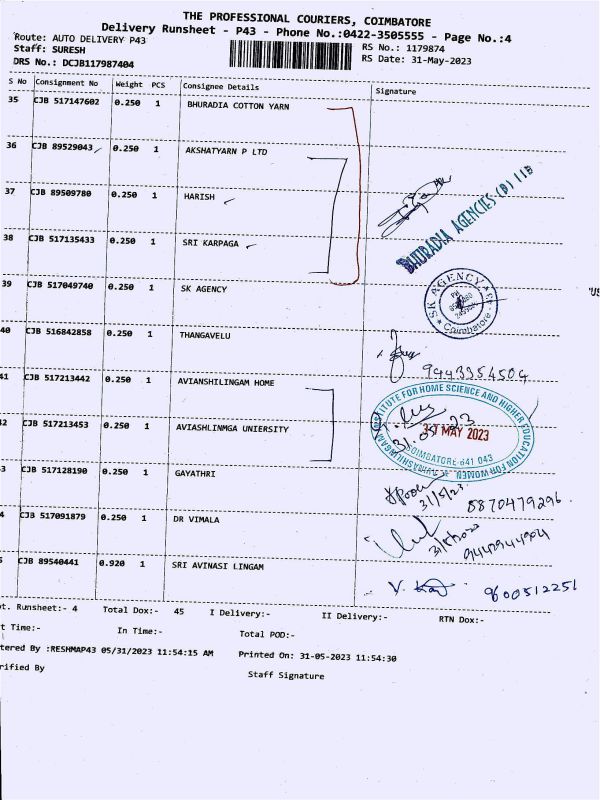 THE PROFESSIONAL COURIERS, COIMBATORE
Delivery Runsheet - P43 - Phone No.:0422-3505555 - Page No.:4
Route: AUTO DELIVERY P43
Staff: SURESH
DRS No.: DCJB117987404
1179874
RS No.: 1179874
RS Date: 31-May-2023
S No Consignment No Weight PCS Consignee Details Signature
35 CJB 517147602 0.250 1 BHURADIA COTTON YARN
36 CJB 89529043 0.250 1 AKSHATYARN P LTD
37 CJB 89509780 0.250 1 HARISH
BHURADIA AGENCIES (P)
38 CJB 517135433 0.250 1 SRI KARPAGA
39 CJB 517049740 0.250 1 SK AGENCY
SK AGENCY
Coimbatore
40 CJB 516842858 0.250 1 THANGAVELU
9443354504
41 CJB 517213442 0.250 1 AVIANSHILINGAM HOME
INSTITUTE FOR HOME SCIENCE AND HIGHER EDUCATION FOR WOMEN
31 MAY 2023
31.05.23
COIMBATORE-641 043
2 CJB 517213453 0.250 1 AVIASHLINMGA UNIERSITY
3 CJB 517128190 0.250 1 GAYATHRI
31/5/23
8870479296
4 CJB 517091879 0.250 1 DR VIMALA
5 CJB 89540441 0.920 1 SRI AVINASI LINGAM
9600512251
ot. Runsheet:- 4 Total Dox:- 45 I Delivery:- II Delivery:- RTN Dox:-
t Time:- In Time:- Total POD:-
tered By :RESHMAP43 05/31/2023 11:54:15 AM Printed On: 31-05-2023 11:54:30
rified By Staff Signature